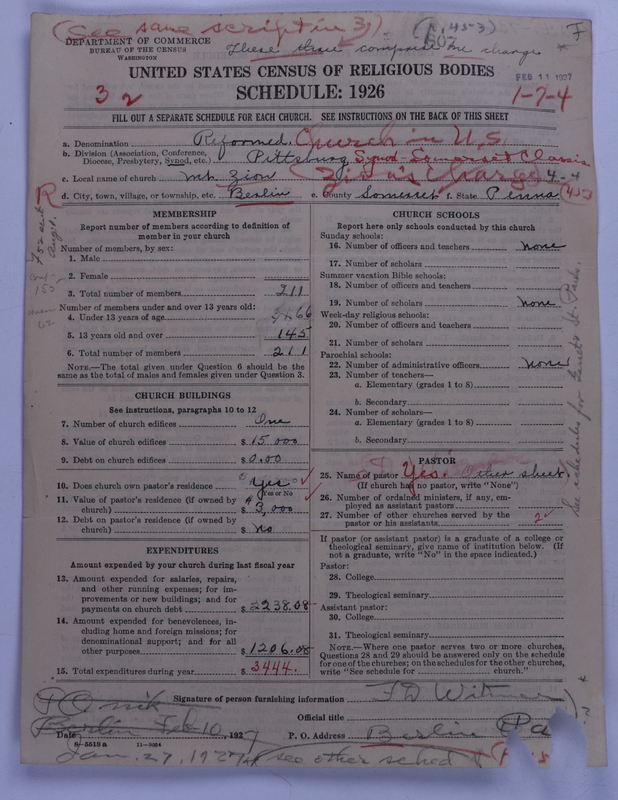 (See same script in 3)
(A, 45-3)
F
DEPARTMENT OF COMMERCE
BUREAU OF THE CENSUS
WASHINGTON
These three comprise one charge *
UNITED STATES CENSUS OF RELIGIOUS BODIES
FEB 11 1927
SCHEDULE: 1926
32
1-7-4
FILL OUT A SEPARATE SCHEDULE FOR EACH CHURCH. SEE INSTRUCTIONS ON THE BACK OF THIS SHEET
a. Denomination Reformed. Church in U.S.
b. Division (Association, Conference, Diocese, Presbytery, Synod, etc.) Pittsburg Synod-Somerset Classis
c. Local name of church Mt. Zion Zion's Charge 4-4
d. City, town, village, or township, etc. Berlin e. County Somerset f. State Penna
R
MEMBERSHIP
Report number of members according to definition of member in your church
Number of members, by sex:
1. Male
2. Female
3. Total number of members 211
Number of members under and over 13 years old:
4. Under 13 years of age 66
5. 13 years old and over 145
6. Total number of members 211
NOTE.—The total given under Question 6 should be the same as the total of males and females given under Question 3.
CHURCH BUILDINGS
See instructions, paragraphs 10 to 12
7. Number of church edifices One
8. Value of church edifices $ 15 000
9. Debt on church edifices $ 0.00
10. Does church own pastor's residence Yes
Yes or No
11. Value of pastor's residence (if owned by church) $ 3,000
12. Debt on pastor's residence (if owned by church) $ No
EXPENDITURES
Amount expended by church during last fiscal year
13. Amount expended for salaries, repairs, and other running expenses; for improvements or new buildings; and for payments on church debt $ 2238.08
14. Amount expended for benevolences, including home and foreign missions; for denominational support; and for all other purposes $ 1206.08
15. Total expenditures during year $ 3444.
CHURCH SCHOOLS
Report here only schools conducted by this church
Sunday schools:
16. Number of officers and teachers none
17. Number of scholars
Summer vacation Bible schools:
18. Number of officers and teachers
19. Number of scholars none
Week-day religious schools:
20. Number of officers and teachers
21. Number of scholars
Parochial schools:
22. Number of administrative officers none
23. Number of teachers—
a. Elementary (grades 1 to 8)
b. Secondary
24. Number of scholars—
a. Elementary (grades 1 to 8)
b. Secondary
PASTOR
25. Name of pastor Yes. Other sheet
(If church has no pastor, write "None")
26. Number of ordained ministers, if any, employed as assistant pastors
27. Number of other churches served by the pastor or his assistants 2
If pastor (or assistant pastor) is a graduate of a college or theological seminary, give name of institution below. (If not a graduate, write "No" in the space indicated.)
Pastor:
28. College
29. Theological seminary
Assistant pastor:
30. College
31. Theological seminary
NOTE.—Where one pastor serves two or more churches, Questions 28 and 29 should be answered only on the schedule for one of the churches; on the schedules for the other churches, write "See schedule for church."
Signature of person furnishing information
Official title
Berlin Feb 10, 1927
Date
P. O. Address Berlin Pa
8-5518 a 11-9024
Jan. 27, 1927 (see other sched